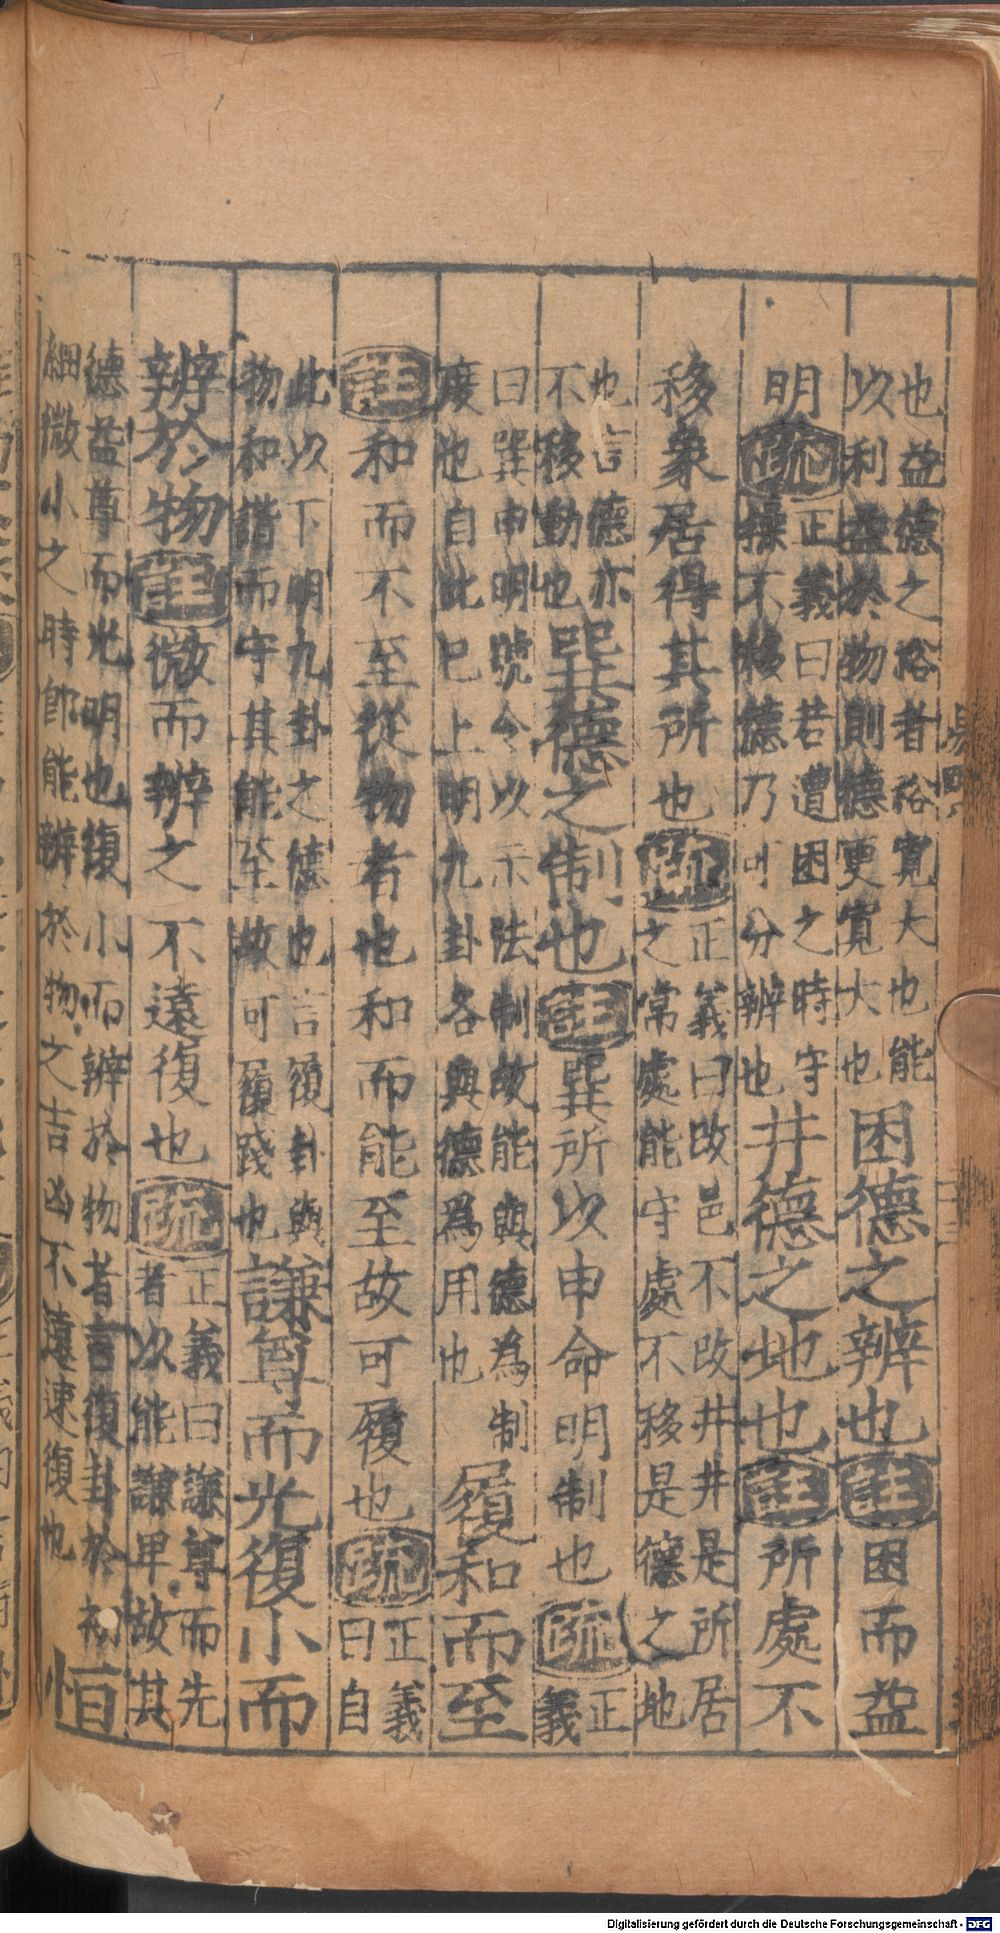 也益德之裕者裕寬大也能以利益於物則德更寬大也困德之辨也註困而益
明疏正義曰若遭困之時守操不移德乃可分辨也井德之地也註所處不
移象居得其所也疏正義曰改邑不改井井是所居之常處能守處不移是德之地
也言德亦不移動也巽德之制也註巽所以申命明制也疏正義
曰巽申明號令以示法制故能與德為制度也自此已上明九卦各與德爲用也履和而至
註和而不至從物者也和而能至故可履也疏正義曰自
此以下明九卦之德也言履卦與物和諧而守其能至故可履踐也謙尊而光復小而
辨於物註微而辨之不遠復也疏正義曰謙尊而先者以能謙卑故其
德益尊而光明也復小而辨於物者言復卦於初細微小之時即能辨於物之吉凶不遠速復也恒
Digitalisierung gefördert durch die Deutsche Forschungsgemeinschaft - DFG